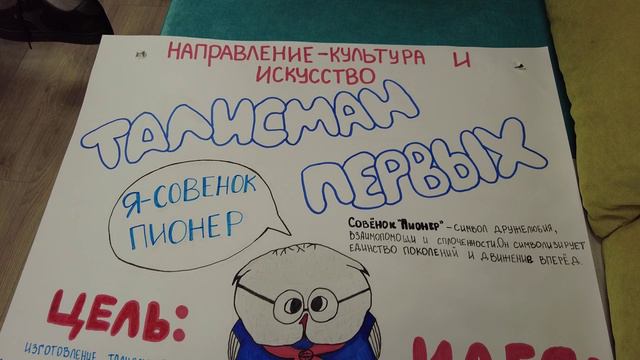 НАПРАВЛЕНИЕ-КУЛЬТУРА И
ИСКУССТВО
ТАЛИСМАН
ПЕРВЫХ
Я-СОВЕНОК
ПИОНЕР
СОВЁНОК "ПИОНЕР" - СИМВОЛ ДРУЖЕЛЮБИЯ,
ВЗАИМОПОМОЩИ И СПЛОЧЕННОСТИ.ОН СИМВОЛИЗИРУЕТ
ЕДИНСТВО ПОКОЛЕНИЙ И ДВИЖЕНИЕ ВПЕРЁД.
ЦЕЛЬ:
ИЗГОТОВЛЕНИЕ